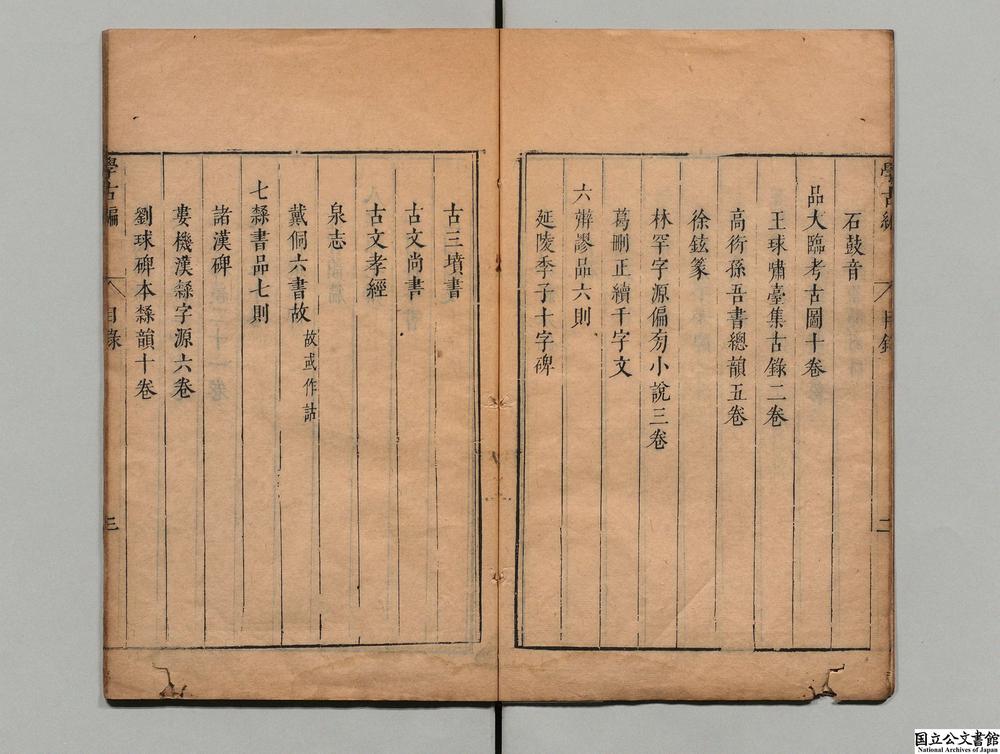 學古編
目錄
二
石鼓音
品大臨考古圖十卷
王球嘯臺集古錄二卷
高衍孫吾書總韻五卷
徐鉉篆
林罕字源偏旁小說三卷
葛刪正續千字文
六辨謬品六則
延陵季子十字碑
古三墳書
古文尚書
古文孝經
泉志
戴侗六書故故或作詁
七隸書品七則
諸漢碑
婁機漢隸字源六卷
劉球碑本隸韻十卷
學古編
目錄
三
国立公文書館
National Archives of Japan